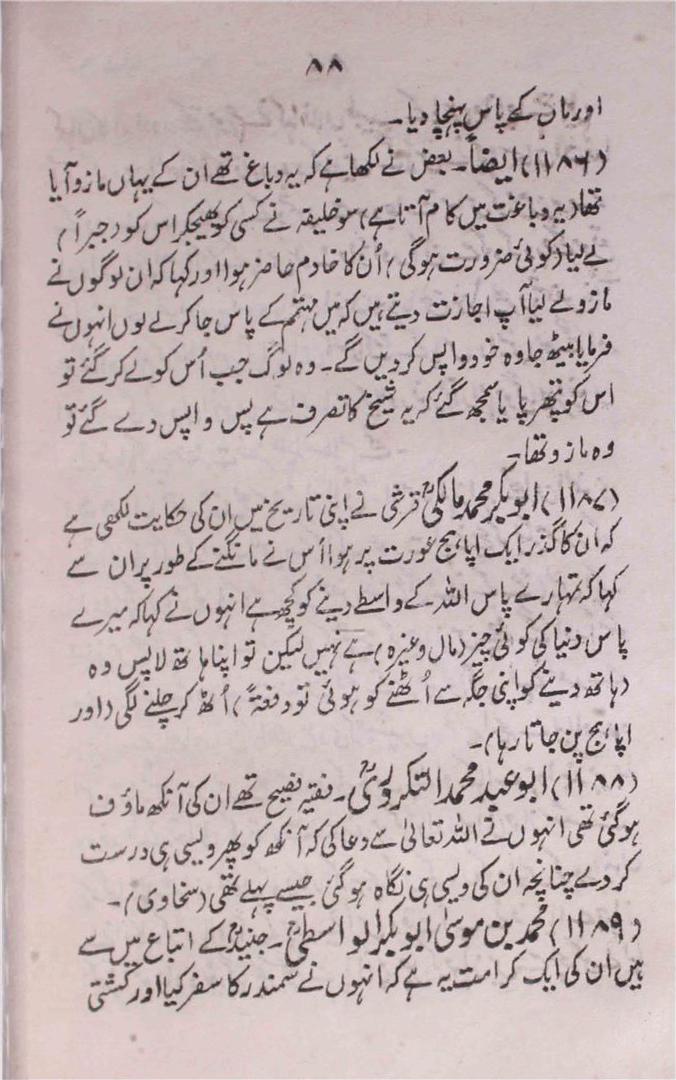 ۸۸
اور ماں کے پاس پہنچا دیا۔
(۱۱۸۶) ایضاً۔ بعض نے لکھا ہے کہ یہ دباغ تھے ان کے یہاں مازو آیا
تھا (یہ دباغت میں کام آتا ہے) سو خلیفہ نے کسی کو بھیجکر اس کو (جبراً)
لے لیا (کوئی ضرورت ہوگی) اُن کا خادم حاضر ہوا اور کہا کہ ان لوگوں نے
مازو لے لیا آپ اجازت دیتے ہیں کہ میں مہتمم کے پاس جا کر لے لوں انہوں نے
فرمایا بیٹھ جا وہ خود واپس کر دیں گے۔ وہ لوگ جب اُس کو لے کر گئے تو
اس کو پتھر پایا سمجھ گئے کہ یہ شیخ کا تصرف ہے پس واپس دے گئے تو
وہ مازو تھا۔
(۱۱۸۷) ابوبکر محمد مالکیؒ قرشی نے اپنی تاریخ میں ان کی حکایت لکھی ہے
کہ ان کا گذر ایک اپاہج عورت پر ہوا اُس نے مانگنے کے طور پر ان سے
کہا کہ تمہارے پاس اللہ کے واسطے دینے کو کچھ ہے انہوں نے کہا کہ میرے
پاس دنیا کی کوئی چیز (مال وغیرہ) ہے نہیں لیکن تو اپنا ہاتھ لا پس وہ
(ہاتھ دینے کو اپنی جگہ سے اُٹھنے کو ہوئی تو دفعۃً) اُٹھ کر چلنے لگی (اور
اپاہج پن جاتا رہا)۔
(۱۱۸۸) ابو عبد محمد التکروریؒ۔ فقیہ فصیح تھے ان کی آنکھ ماؤف
ہوگئی تھی انہوں نے اللہ تعالیٰ سے دعا کی کہ آنکھ کو پھر ویسی ہی درست
کر دے چنانچہ ان کی ویسی ہی نگاہ ہوگئی جیسے پہلے تھی (سخاوی)۔
(۱۱۸۹) محمد بن موسیٰ ابوبکر الواسطیؒ۔ جنیدؒ کے اتباع میں سے
ہیں ان کی ایک کرامت یہ ہے کہ انہوں نے سمندر کا سفر کیا اور کشتی